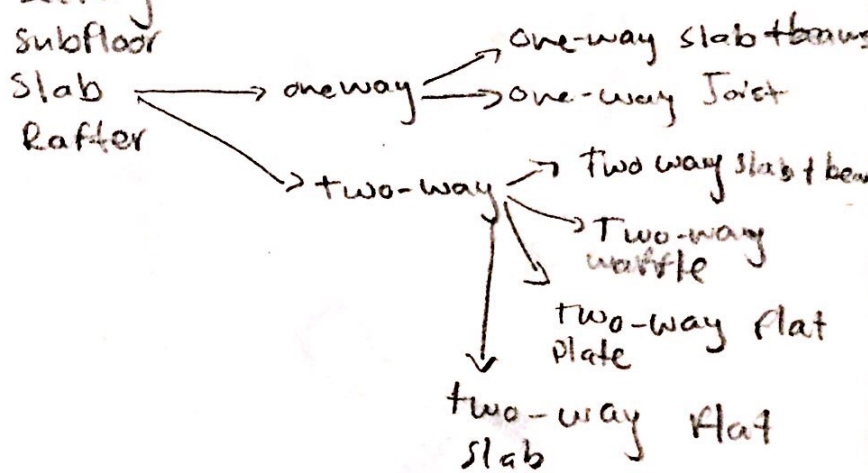 subfloor
Slab
Rafter
oneway
one-way slab + beams
one-way Joist
two-way
Two way slab +
Two-way
waffle
two-way flat
plate
two-way flat
slab